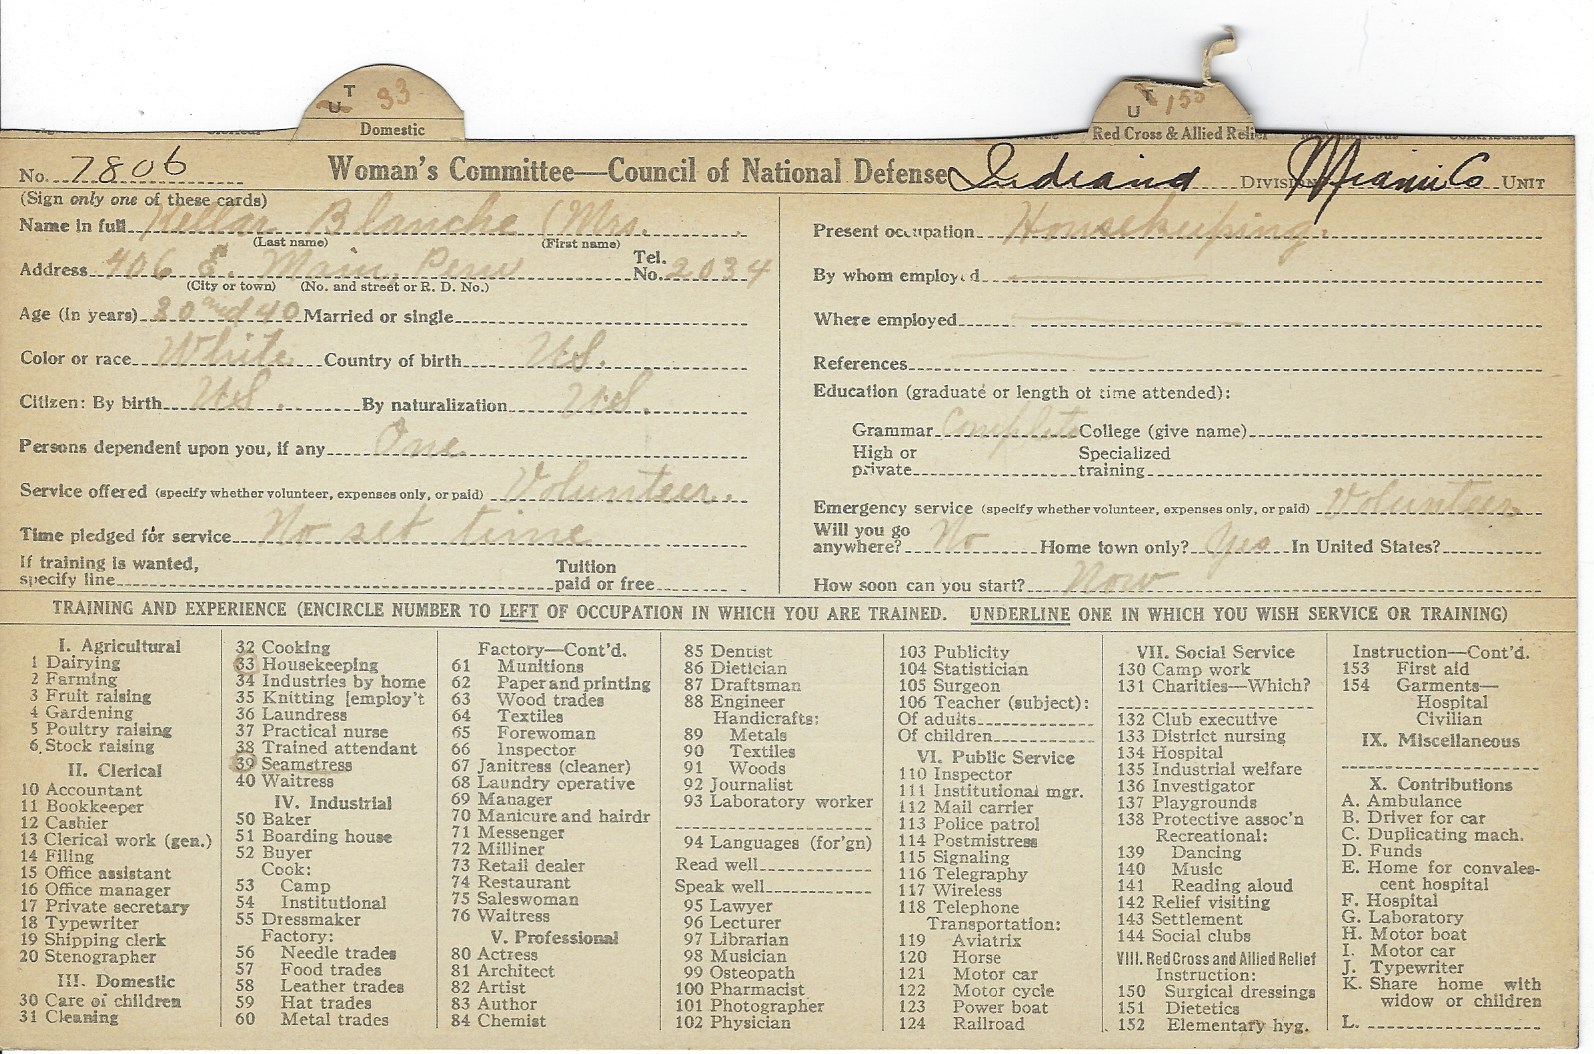 T
U 33
Domestic
T
U 155
Red Cross & Allied Relief
No. 7806 Woman's Committee—Council of National Defense Indiana DIVISION Miami Co UNIT
(Sign only one of these cards)
Name in full Kellar Blanche (Mrs.
(Last name) (First name)
Address 406 E. Main, Peru Tel. No. 2034
(City or town) (No. and street or R. D. No.)
Age (in years) 30 and 40 Married or single
Color or race White Country of birth US.
Citizen: By birth US. By naturalization US.
Persons dependent upon you, if any One
Service offered (specify whether volunteer, expenses only, or paid) Volunteer.
Time pledged for service No set time
If training is wanted, specify line Tuition paid or free
Present occupation Housekeeping.
By whom employed
Where employed
References
Education (graduate or length of time attended):
Grammar Complete College (give name)
High or private Specialized training
Emergency service (specify whether volunteer, expenses only, or paid) Volunteer
Will you go anywhere? No Home town only? Yes In United States?
How soon can you start? Now
TRAINING AND EXPERIENCE (ENCIRCLE NUMBER TO LEFT OF OCCUPATION IN WHICH YOU ARE TRAINED. UNDERLINE ONE IN WHICH YOU WISH SERVICE OR TRAINING)
I. Agricultural
1 Dairying
2 Farming
3 Fruit raising
4 Gardening
5 Poultry raising
6 Stock raising
II. Clerical
10 Accountant
11 Bookkeeper
12 Cashier
13 Clerical work (gen.)
14 Filing
15 Office assistant
16 Office manager
17 Private secretary
18 Typewriter
19 Shipping clerk
20 Stenographer
III. Domestic
30 Care of children
31 Cleaning
32 Cooking
33 Housekeeping
34 Industries by home
35 Knitting [employ't
36 Laundress
37 Practical nurse
38 Trained attendant
39 Seamstress
40 Waitress
IV. Industrial
50 Baker
51 Boarding house
52 Buyer
Cook:
53 Camp
54 Institutional
55 Dressmaker
Factory:
56 Needle trades
57 Food trades
58 Leather trades
59 Hat trades
60 Metal trades
Factory—Cont'd.
61 Munitions
62 Paper and printing
63 Wood trades
64 Textiles
65 Forewoman
66 Inspector
67 Janitress (cleaner)
68 Laundry operative
69 Manager
70 Manicure and hairdr
71 Messenger
72 Milliner
73 Retail dealer
74 Restaurant
75 Saleswoman
76 Waitress
V. Professional
80 Actress
81 Architect
82 Artist
83 Author
84 Chemist
85 Dentist
86 Dietician
87 Draftsman
88 Engineer
Handicrafts:
89 Metals
90 Textiles
91 Woods
92 Journalist
93 Laboratory worker
94 Languages (for'gn)
Read well
Speak well
95 Lawyer
96 Lecturer
97 Librarian
98 Musician
99 Osteopath
100 Pharmacist
101 Photographer
102 Physician
103 Publicity
104 Statistician
105 Surgeon
106 Teacher (subject):
Of adults
Of children
VI. Public Service
110 Inspector
111 Institutional mgr.
112 Mail carrier
113 Police patrol
114 Postmistress
115 Signaling
116 Telegraphy
117 Wireless
118 Telephone
Transportation:
119 Aviatrix
120 Horse
121 Motor car
122 Motor cycle
123 Power boat
124 Railroad
VII. Social Service
130 Camp work
131 Charities—Which?
132 Club executive
133 District nursing
134 Hospital
135 Industrial welfare
136 Investigator
137 Playgrounds
138 Protective assoc'n
Recreational:
139 Dancing
140 Music
141 Reading aloud
142 Relief visiting
143 Settlement
144 Social clubs
VIII. Red Cross and Allied Relief
Instruction:
150 Surgical dressings
151 Dietetics
152 Elementary hyg.
Instruction—Cont'd.
153 First aid
154 Garments—
Hospital
Civilian
IX. Miscellaneous
X. Contributions
A. Ambulance
B. Driver for car
C. Duplicating mach.
D. Funds
E. Home for convales-
cent hospital
F. Hospital
G. Laboratory
H. Motor boat
I. Motor car
J. Typewriter
K. Share home with
widow or children
L.